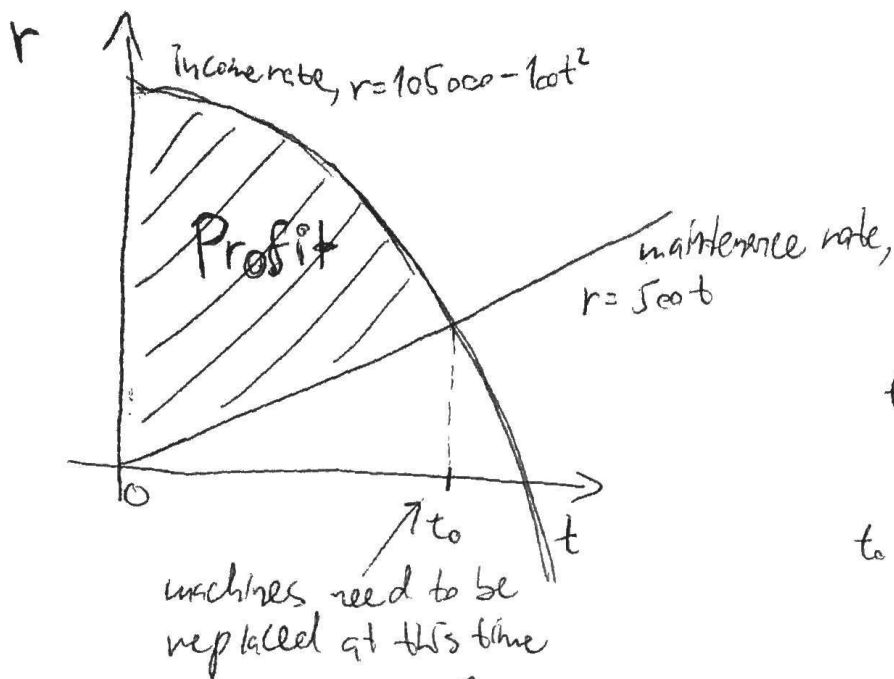 r
Income rate, r=105000-100t²
Profit
maintenence rate,
r= 500t
0
t₀
t
t₀
machines need to be
replaced at this time